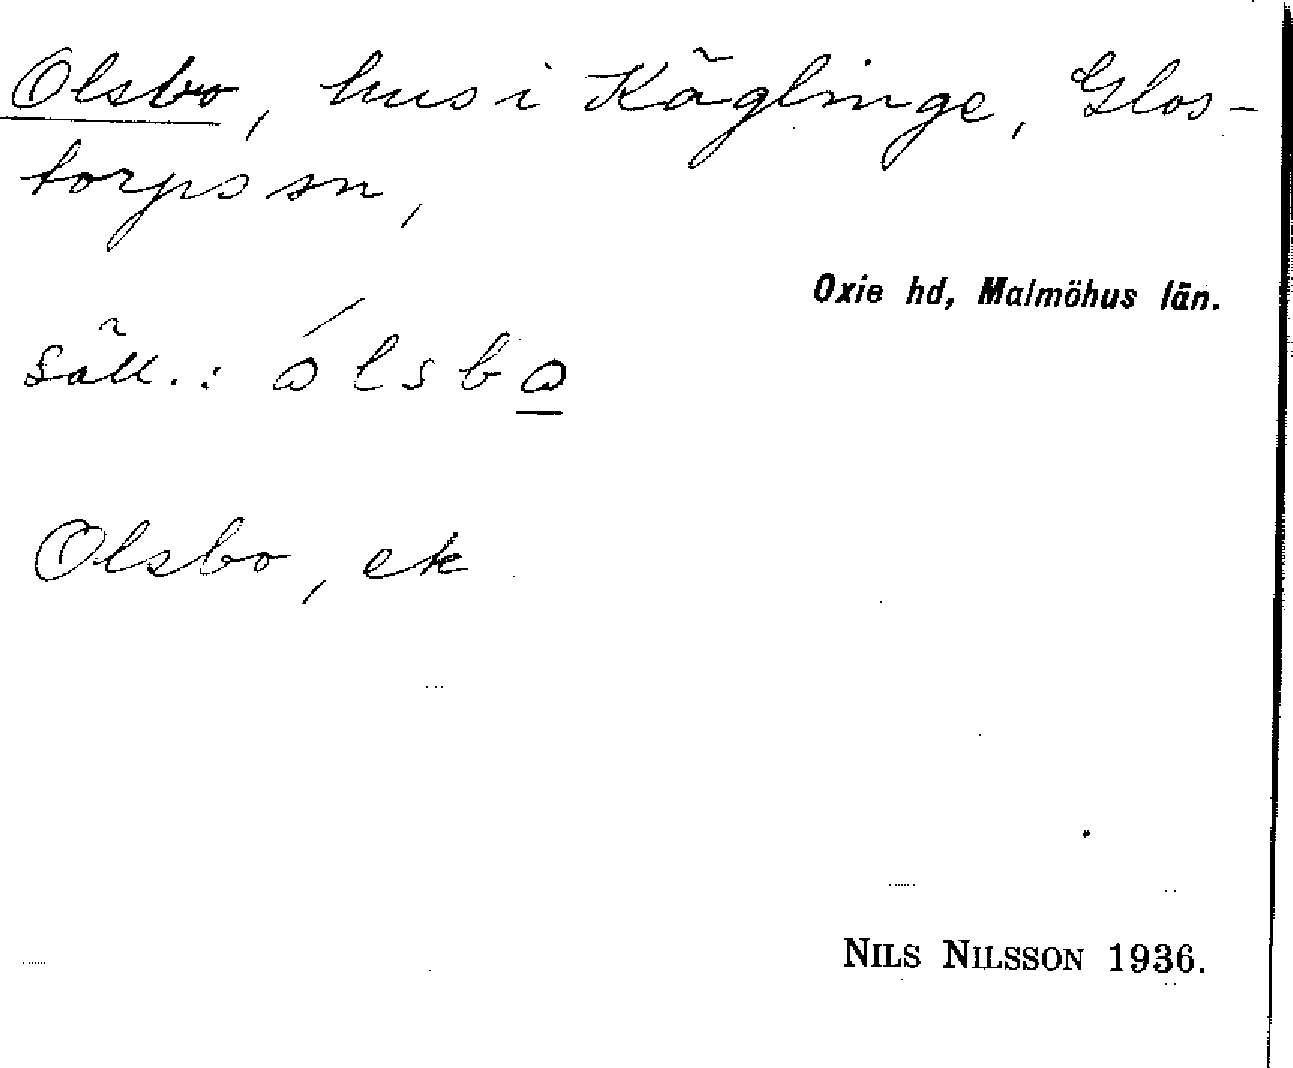 Olsbo, hus i Käglinge, Glos-
torps sn,
Oxie hd, Malmöhus län.
säll.: ólsbo
Olsbo, ek
NILS NILSSON 1936.